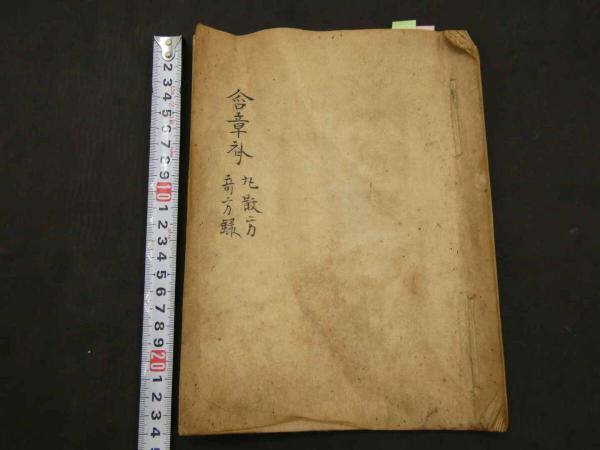 含章斎
丸散方
奇方録
2 3 4 5 6 7 8 9 10 1 2 3 4 5 6 7 8 9 20 1 2 3 4